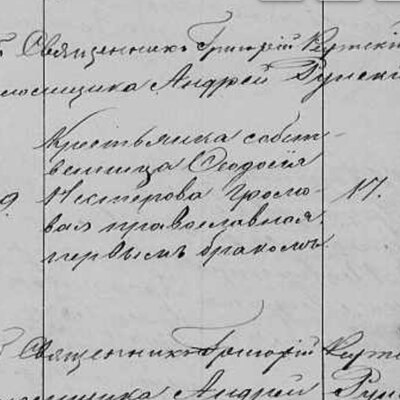 Священникъ Григорій
псаломщика Андрей Рунскі
Крестьянка собст-
венница Ѳеодосія
9. Нестерова Громо- 17.
вая православная
первымъ бракомъ.
Священникъ Григорій
Андрей